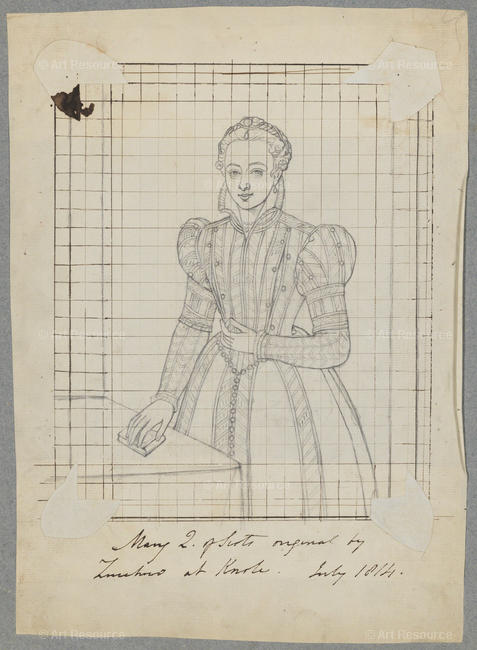 © Art Resource © Art Resource
© Art Resource © Art Resource
© Art Resource © Art Resource
Mary Q. of Scots original by
Zucchero at Knole. July 1814.
© Art Resource © Art Resource